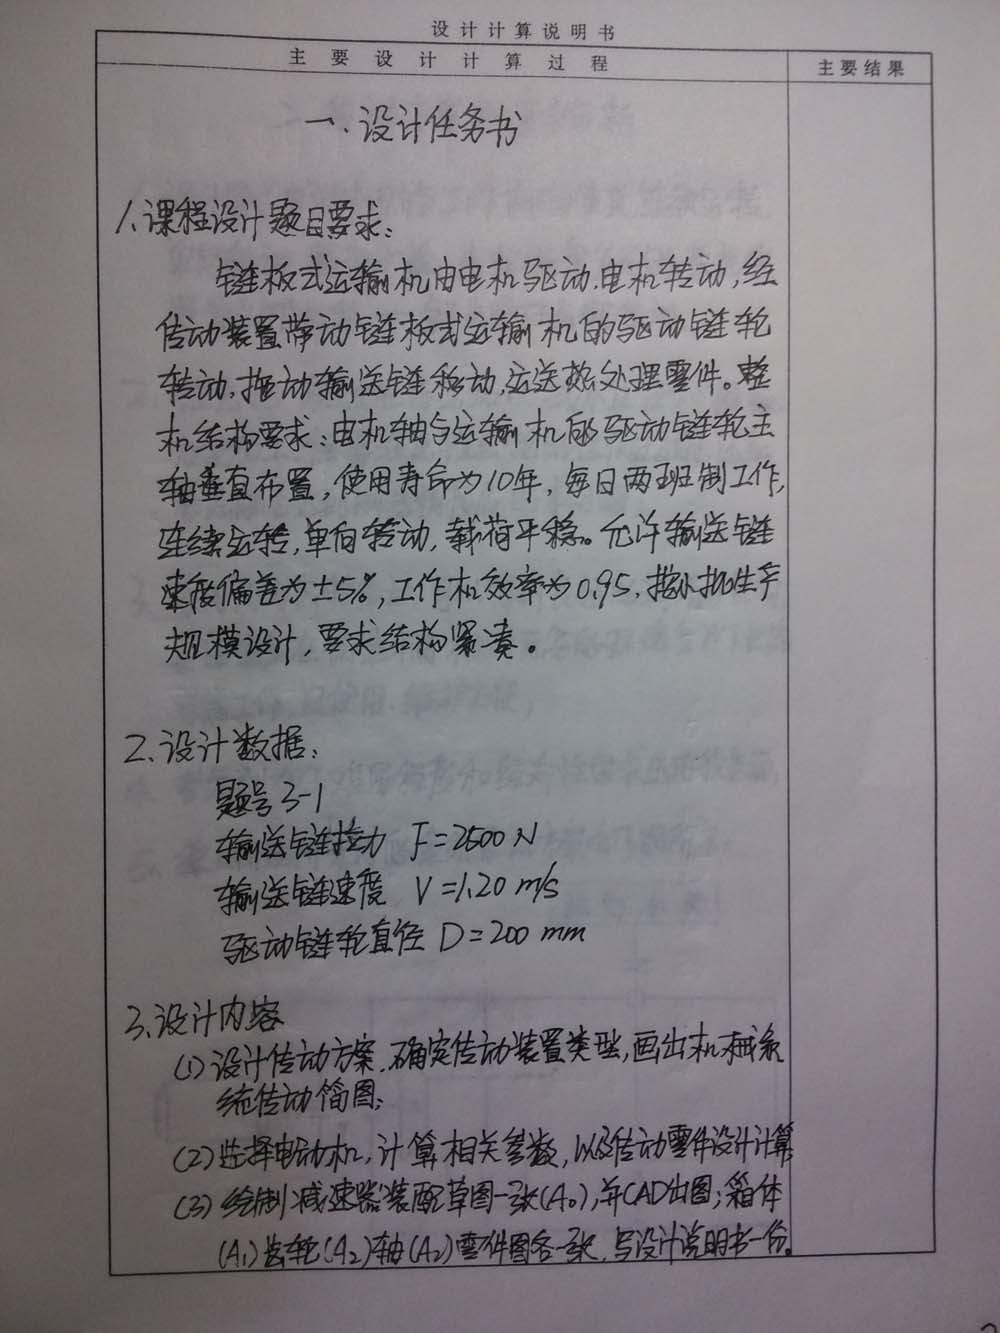 设计计算说明书
主要设计计算过程
主要结果
一、设计任务书
1、课程设计题目要求：
链板式运输机由电机驱动，电机转动，经
传动装置带动链板式运输机的驱动链轮
转动，拖动输送链移动，运送热处理零件。整
机结构要求：电机轴与运输机的驱动链轮主
轴垂直布置，使用寿命为10年，每日两班制工作，
连续运转，单向转动，载荷平稳。允许输送链
速度偏差为±5%，工作机效率为0.95，按小批生产
规模设计，要求结构紧凑。
2、设计数据：
题号3-1
输送链拉力 F=2500 N
输送链速度 V=1.20 m/s
驱动链轮直径 D=200 mm
3、设计内容
(1)设计传动方案，确定传动装置类型，画出机械系
统传动简图；
(2)选择电动机，计算相关参数，以及传动零件设计计算
(3)绘制减速器装配草图一张(A0)，并CAD出图；箱体
(A1)齿轮(A2)轴(A2)零件图各一张，写设计说明书一份。